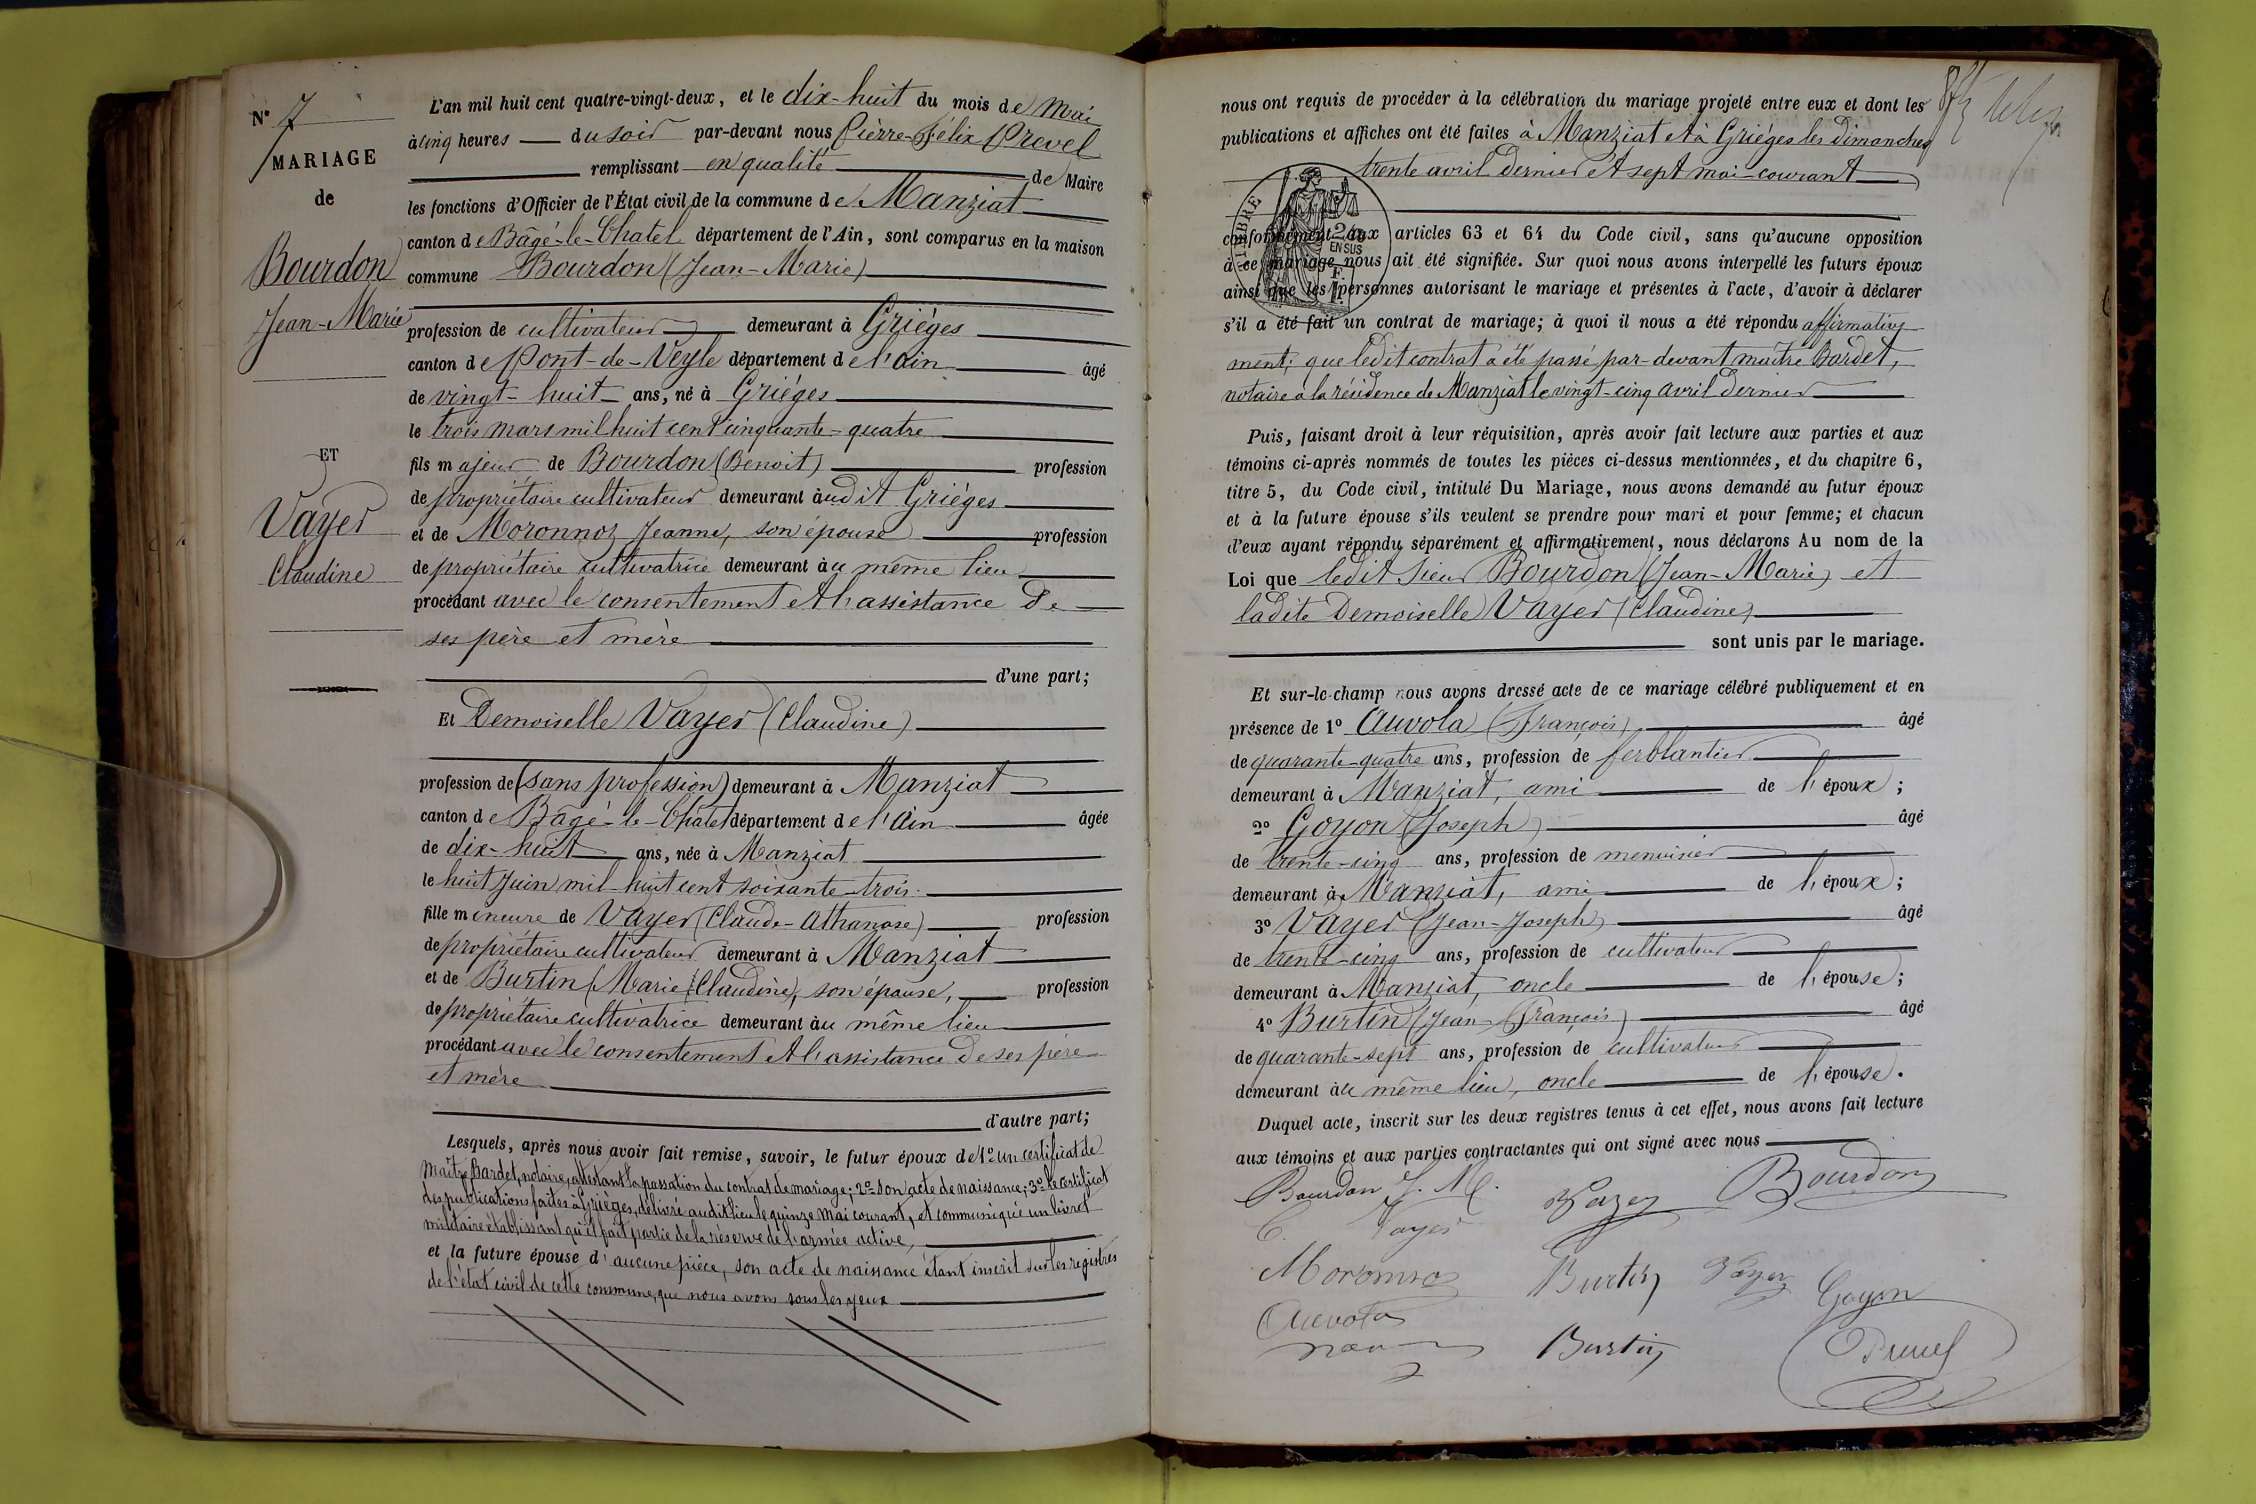 N° 7
MARIAGE
de
Bourdon
Jean-Marie
ET
Vayer
Claudine
L'an mil huit cent quatre-vingt-deux, et le dix-huit du mois de Mai
à cinq heures du soir par-devant nous Pierre-Félix Prevel
remplissant en qualité de Maire
les fonctions d'Officier de l'État civil de la commune de Manziat
canton de Bâgé-le-Chatel département de l'Ain, sont comparus en la maison
commune Bourdon (Jean-Marie)
profession de cultivateur demeurant à Grièges
canton de Pont-de-Veyle département de l'ain âgé
de vingt-huit ans, né à Grièges
le trois mars mil huit cent cinquante-quatre
fils majeur de Bourdon (Benoit) profession
de propriétaire cultivateur demeurant audit Grièges
et de Moronnoz Jeanne, son épouse profession
de propriétaire cultivatrice demeurant au même lieu
procédant avec le consentement et l'assistance de
ses père et mère
d'une part;
Et Demoiselle Vayer (Claudine)
profession de (sans profession) demeurant à Manziat
canton de Bâgé-le-Chatel département de l'ain âgée
de dix-huit ans, née à Manziat
le huit Juin mil huit cent soixante-trois
fille mineure de Vayer (Claude-Athanase) profession
de propriétaire cultivateur demeurant à Manziat
et de Burtin (Marie Claudine), son épouse, profession
de propriétaire cultivatrice demeurant au même lieu
procédant avec le consentement et l'assistance de ses père
et mère
d'autre part;
Lesquels, après nous avoir fait remise, savoir, le futur époux de 1° un certificat de
Maître Bardet, notaire, attestant la passation du contrat de mariage; 2° son acte de naissance; 3° le certificat
des publications faites à Grièges, délivré audit lieu le quinze Mai courant, et communiqué un livret
militaire établissant qu'il fait partie de la réserve de l'armée active,
et la future épouse d'aucune pièce, son acte de naissance étant inscrit sur les registres
de l'état civil de cette commune, que nous avons sous les yeux
nous ont requis de procéder à la célébration du mariage projeté entre eux et dont les
publications et affiches ont été faites à Manziat et à Grièges les dimanches
trente avril dernier et sept mai courant
TIMBRE
2/10
EN SUS
conformément aux articles 63 et 64 du Code civil, sans qu'aucune opposition
à ce mariage nous ait été signifiée. Sur quoi nous avons interpellé les futurs époux
ainsi que les personnes autorisant le mariage et présentes à l'acte, d'avoir à déclarer
s'il a été fait un contrat de mariage; à quoi il nous a été répondu affirmative
ment; que ledit contrat a été passé par-devant maître Bardet,
notaire à la résidence de Manziat le vingt-cinq avril dernier
Puis, faisant droit à leur réquisition, après avoir fait lecture aux parties et aux
témoins ci-après nommés de toutes les pièces ci-dessus mentionnées, et du chapitre 6,
titre 5, du Code civil, intitulé Du Mariage, nous avons demandé au futur époux
et à la future épouse s'ils veulent se prendre pour mari et pour femme; et chacun
d'eux ayant répondu séparément et affirmativement, nous déclarons Au nom de la
Loi que ledit Sieur Bourdon (Jean-Marie) et
ladite Demoiselle Vayer (Claudine)
sont unis par le mariage.
Et sur-le-champ nous avons dressé acte de ce mariage célébré publiquement et en
présence de 1° Auvola (François) âgé
de quarante-quatre ans, profession de ferblantier
demeurant à Manziat, ami de l'époux;
2° Goyon (Joseph) âgé
de trente-cinq ans, profession de menuisier
demeurant à Manziat, ami de l'époux;
3° Vayer (Jean-Joseph) âgé
de trente-cinq ans, profession de cultivateur
demeurant à Manziat, oncle de l'épouse;
4° Burtin (Jean-François) âgé
de quarante-sept ans, profession de cultivateur
demeurant au même lieu, oncle de l'épouse.
Duquel acte, inscrit sur les deux registres tenus à cet effet, nous avons fait lecture
aux témoins et aux parties contractantes qui ont signé avec nous
Bourdon J. M. Vayer Bourdon
C. Vayer
Moronnoz Burtin Vayer Goyon
Auvola
Burtin Prevel